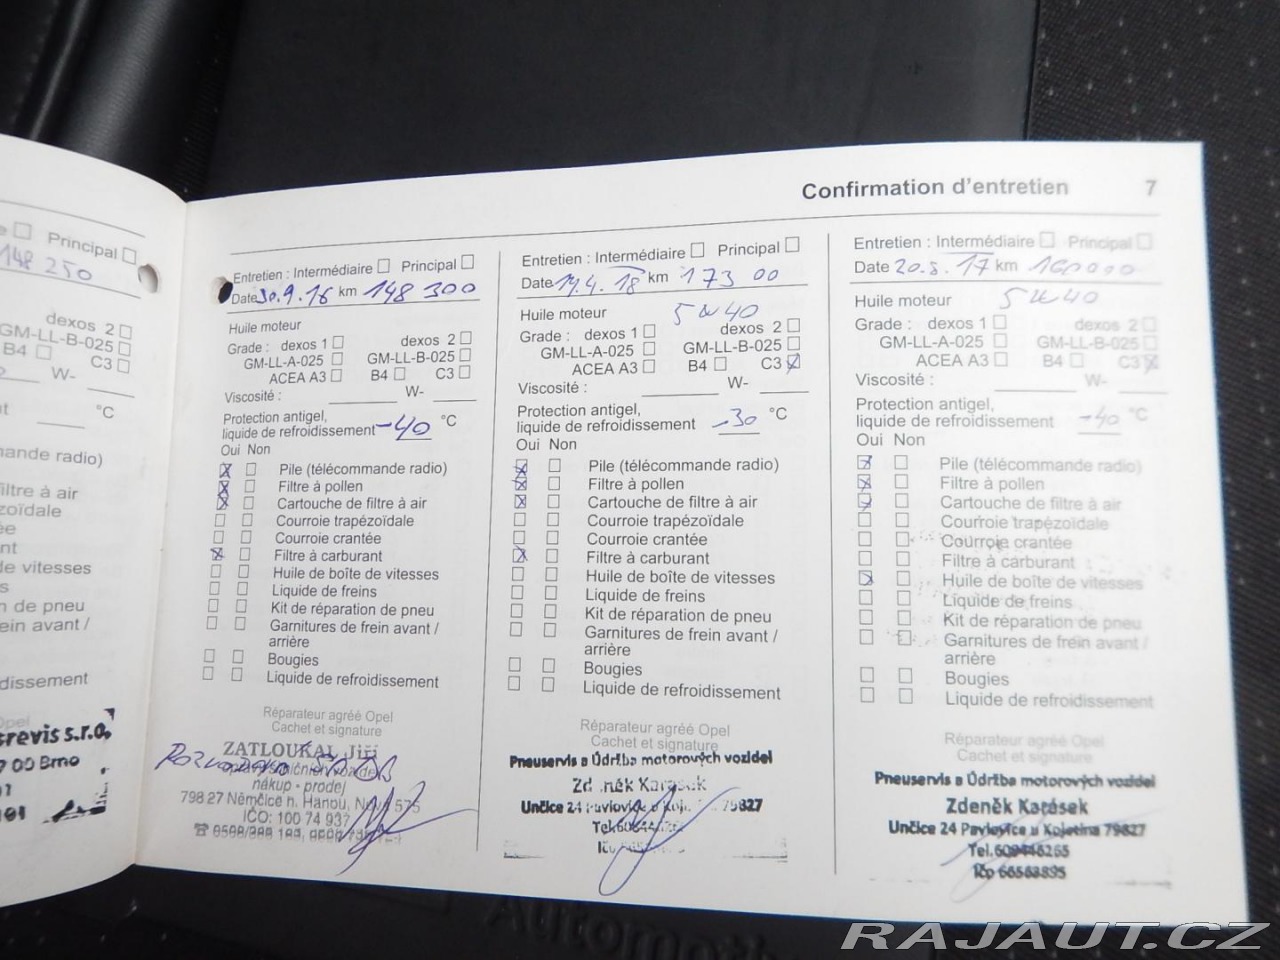 Confirmation d'entretien 7
Principal
148 250
dexos 2
GM-LL-B-025
B4 C3
W-
°C
ande radio)
iltre à air
zoïdale
ée
nt
de vitesses
s
n de pneu
ein avant /
dissement
Opel
revis s.r.o.
00 Brno
Entretien : Intermédiaire Principal
Date 30.9.16 km 148 300
Huile moteur
Grade : dexos 1 dexos 2
GM-LL-A-025 GM-LL-B-025
ACEA A3 B4 C3
Viscosité : W-
Protection antigel,
liquide de refroidissement -40 °C
Oui Non
Pile (télécommande radio)
Filtre à pollen
Cartouche de filtre à air
Courroie trapézoïdale
Courroie crantée
Filtre à carburant
Huile de boîte de vitesses
Liquide de freins
Kit de réparation de pneu
Garnitures de frein avant /
arrière
Bougies
Liquide de refroidissement
Réparateur agréé Opel
Cachet et signature
ZATLOUKAL Jiří
nákup - prodej
798 27 Němčice n. Hanou,
IČO: 100 74 937
Entretien : Intermédiaire Principal
Date 14.4.18 km 173 00
Huile moteur 5w40
Grade : dexos 1 dexos 2
GM-LL-A-025 GM-LL-B-025
ACEA A3 B4 C3
Viscosité : W-
Protection antigel,
liquide de refroidissement -30 °C
Oui Non
Pile (télécommande radio)
Filtre à pollen
Cartouche de filtre à air
Courroie trapézoïdale
Courroie crantée
Filtre à carburant
Huile de boîte de vitesses
Liquide de freins
Kit de réparation de pneu
Garnitures de frein avant /
arrière
Bougies
Liquide de refroidissement
Réparateur agréé Opel
Cachet et signature
Pneuservis a Údržba motorových vozidel
Zdeněk Karásek
Unčice 24 Pavlovice u Koj 79827
Entretien : Intermédiaire Principal
Date 20.5.17 km 160000
Huile moteur 5w40
Grade : dexos 1 dexos 2
GM-LL-A-025 GM-LL-B-025
ACEA A3 B4 C3
Viscosité : W-
Protection antigel,
liquide de refroidissement -40 °C
Oui Non
Pile (télécommande radio)
Filtre à pollen
Cartouche de filtre à air
Courroie trapézoïdale
Courroie crantée
Filtre à carburant
Huile de boîte de vitesses
Liquide de freins
Kit de réparation de pneu
Garnitures de frein avant /
arrière
Bougies
Liquide de refroidissement
Réparateur agréé Opel
Cachet et signature
Pneuservis a Údržba motorových vozidel
Zdeněk Karásek
Unčice 24 Pavlovice u Kojetína 79827
Tel.
IČo
RAJAUT.CZ